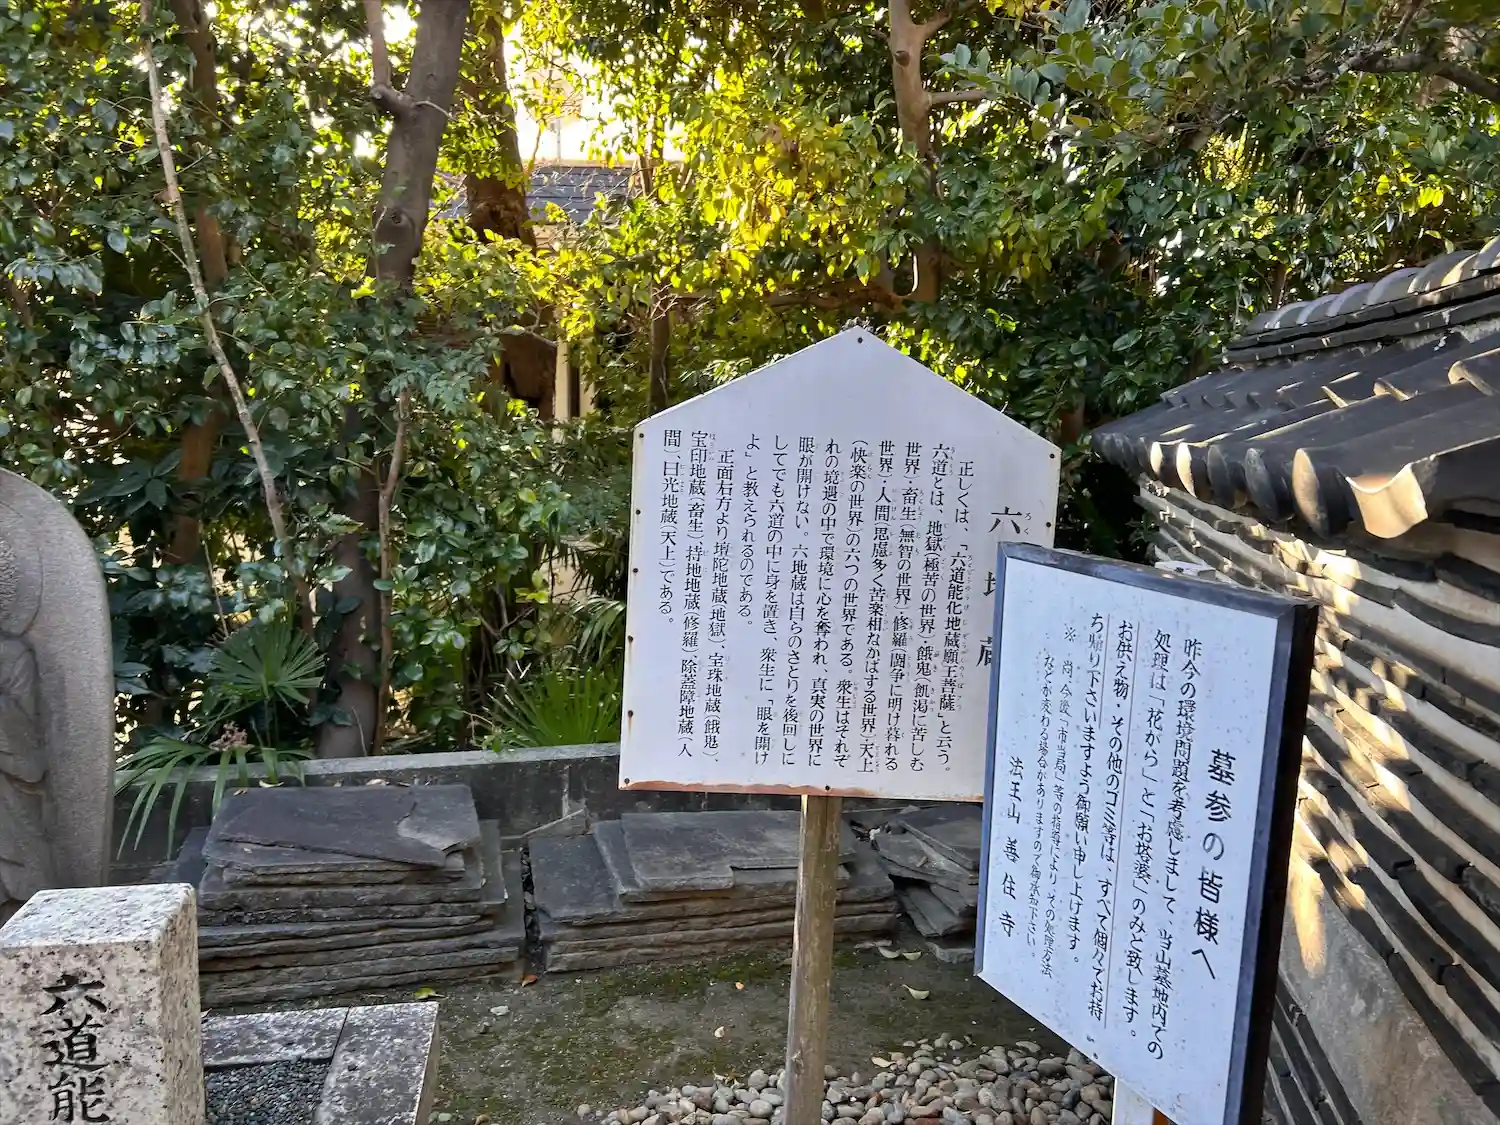 六地蔵
正しくは、「六道能化地蔵願王菩薩」と云う。
六道とは、地獄(極苦の世界)・餓鬼(飢渇に苦しむ
世界)・畜生(無智の世界)・修羅(闘争に明け暮れる
世界)・人間(思慮多く苦楽相なかばする世界)天上
(快楽の世界)の六つの世界である。衆生はそれぞ
れの境遇の中で環境に心を奪われ、真実の世界に
眼が開けない。六地蔵は自らのさとりを後回しに
してでも六道の中に身を置き、衆生に「眼を開け
よ」と教えられるのである。
正面右方より 陀地蔵(地獄)、宝珠地蔵(餓鬼)、
宝印地蔵(畜生)、持地地蔵(修羅)、除蓋障地蔵(人
間)、日光地蔵(天上)である。
墓参の皆様へ
昨今の環境問題を考慮しまして、当山墓地内での
処理は「花がら」と「お塔婆」のみと致します。
お供え物・その他のゴミ等は、すべて個々でお持
ち帰り下さいますよう御願い申し上げます。
※ 尚、今後「市当局」等の指導により、その処理方法
などが変わる場合がありますので御承知下さい。
法王山 善住寺
六道能